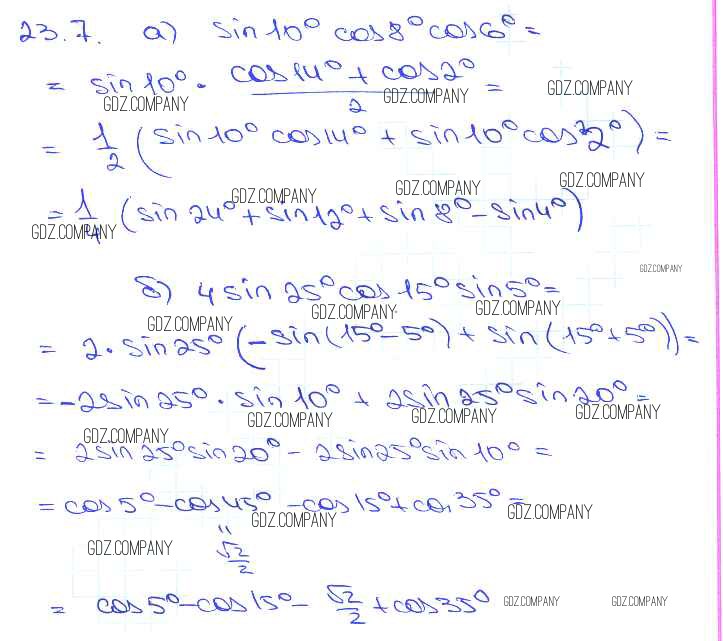 23.7. а) sin10° cos8° cos6° =
= sin10° · (cos14° + cos2°)/2 =
GDZ.COMPANY GDZ.COMPANY GDZ.COMPANY
= 1/2 (sin10° cos14° + sin10° cos2°) =
GDZ.COMPANY GDZ.COMPANY GDZ.COMPANY
= 1/4 (sin24° + sin12° + sin8° - sin4°)
GDZ.COMPANY
GDZ.COMPANY
б) 4sin25° cos15° sin5° =
GDZ.COMPANY GDZ.COMPANY GDZ.COMPANY
= 2·sin25° (-sin(15°-5°) + sin(15°+5°)) =
= -2sin25° · sin10° + 2sin25° sin20° =
GDZ.COMPANY GDZ.COMPANY GDZ.COMPANY
GDZ.COMPANY
= 2sin25° sin20° - 2sin25° sin10° =
= cos5° - cos45° - cos15° + cos35° =
GDZ.COMPANY GDZ.COMPANY
GDZ.COMPANY
"
√2/2
= cos5° - cos15° - √2/2 + cos35°
GDZ.COMPANY GDZ.COMPANY